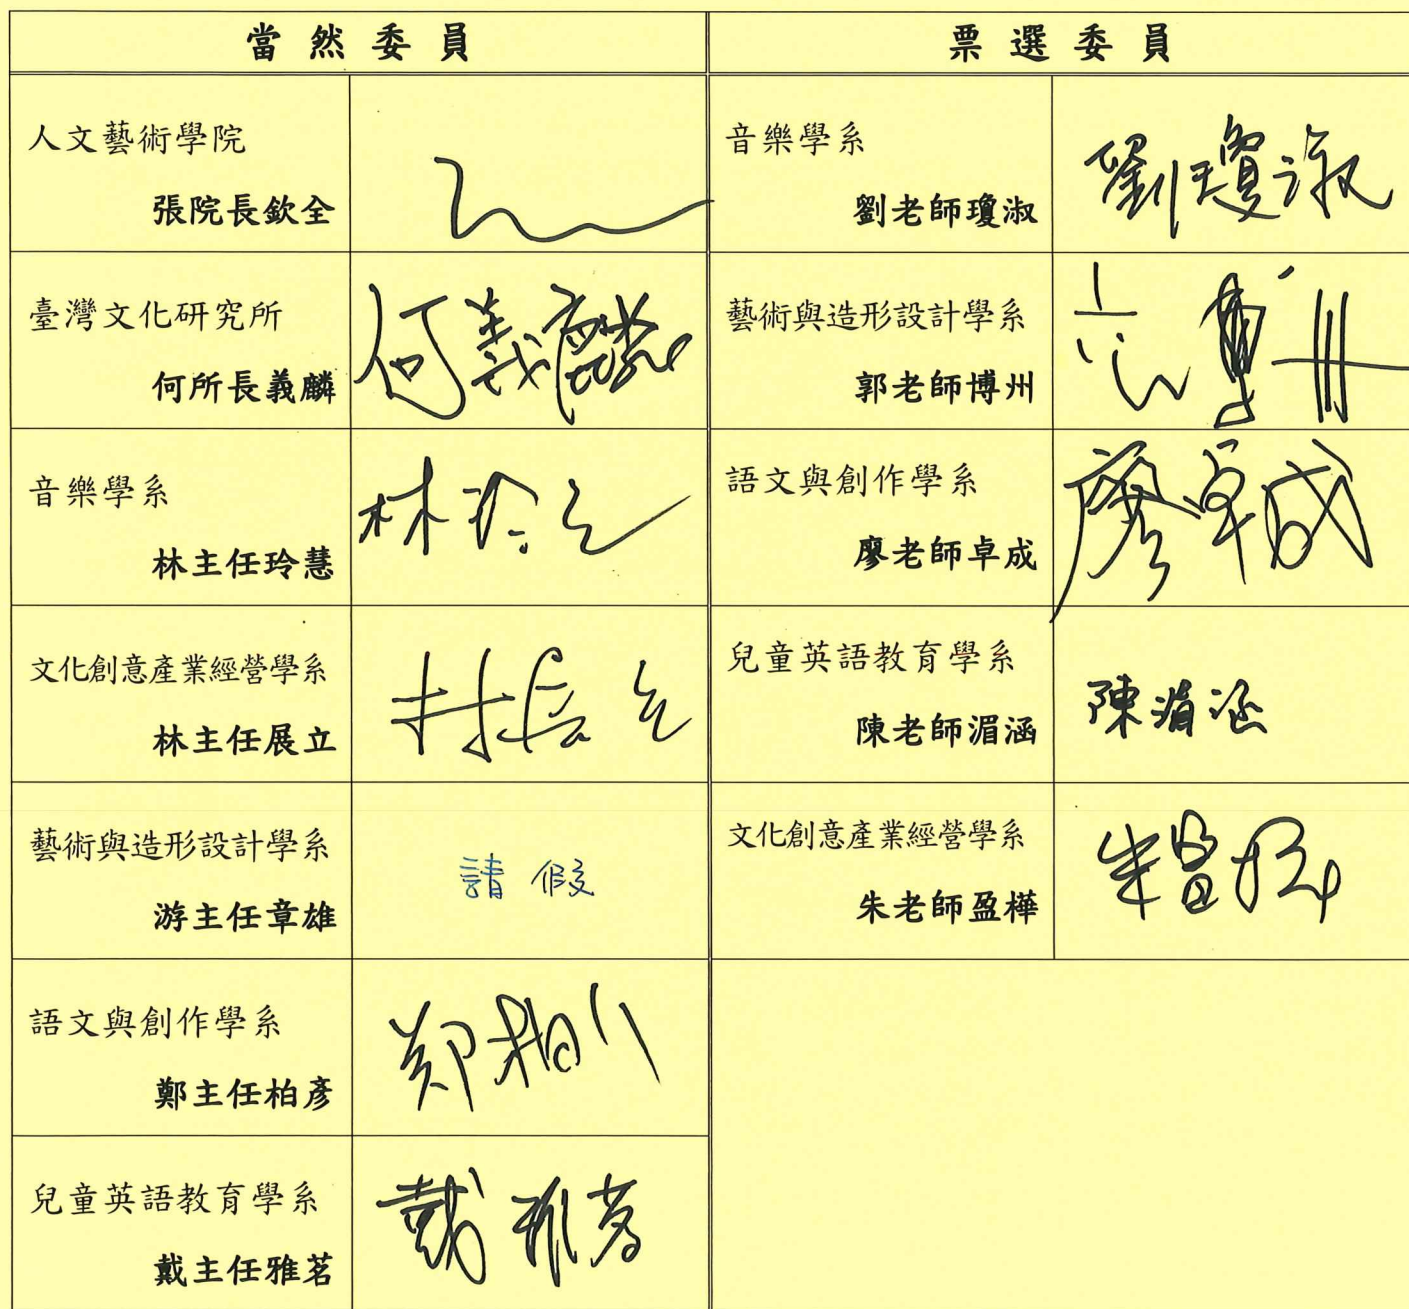 當然委員
票選委員
人文藝術學院
張院長欽全
音樂學系
劉老師瓊淑
劉瓊淑
臺灣文化研究所
何所長義麟
何義麟
藝術與造形設計學系
郭老師博州
音樂學系
林主任玲慧
語文與創作學系
廖老師卓成
廖卓成
文化創意產業經營學系
林主任展立
兒童英語教育學系
陳老師湄涵
陳湄涵
藝術與造形設計學系
游主任章雄
請假
文化創意產業經營學系
朱老師盈樺
語文與創作學系
鄭主任柏彥
兒童英語教育學系
戴主任雅茗
戴雅茗